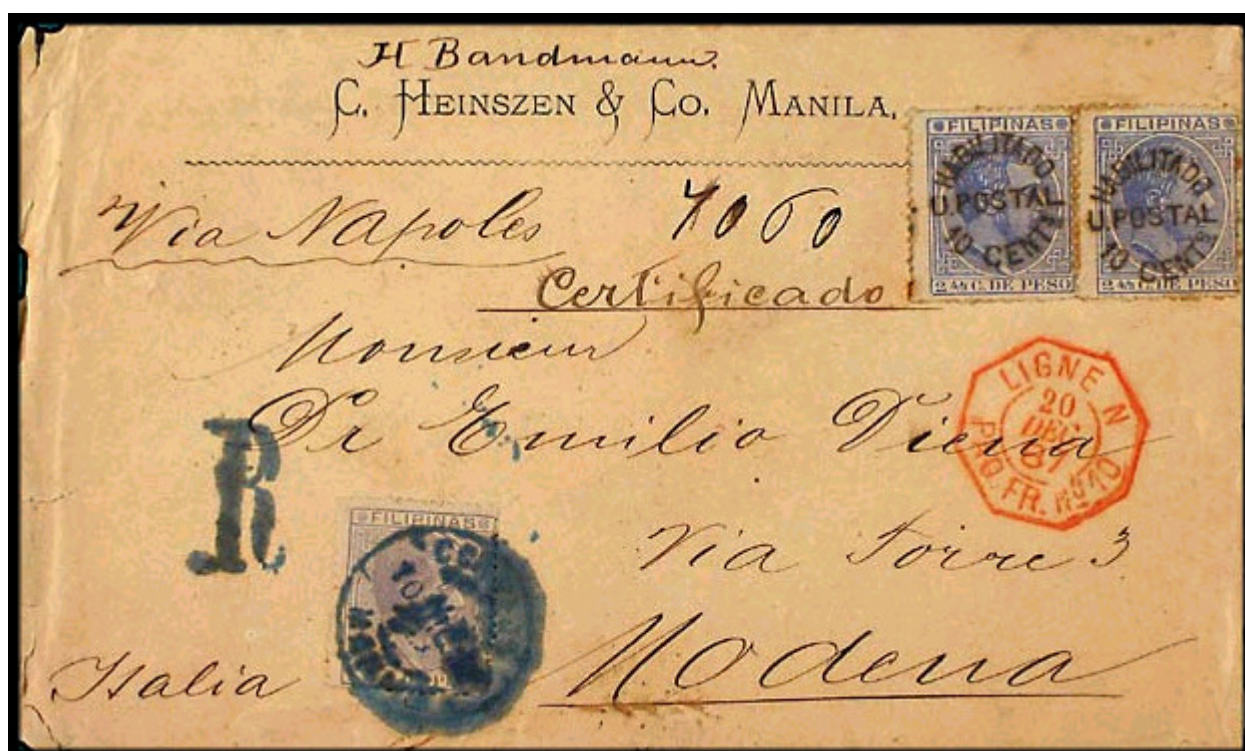 H Bandmann.
C. HEINSZEN & CO. MANILA.
FILIPINAS
HABILITADO
U.POSTAL
10 CENTS
2 4/8 C. DE PESO
FILIPINAS
HABILITADO
U.POSTAL
10 CENTS
2 4/8 C. DE PESO
Via Napoles
Certificado
Monsieur
Dr Emilio Diena
LIGNE N
20
DEC
87
PAQ. FR. Nº 10
R
Via Torre 3
FILIPINAS
10
Modena
Italia